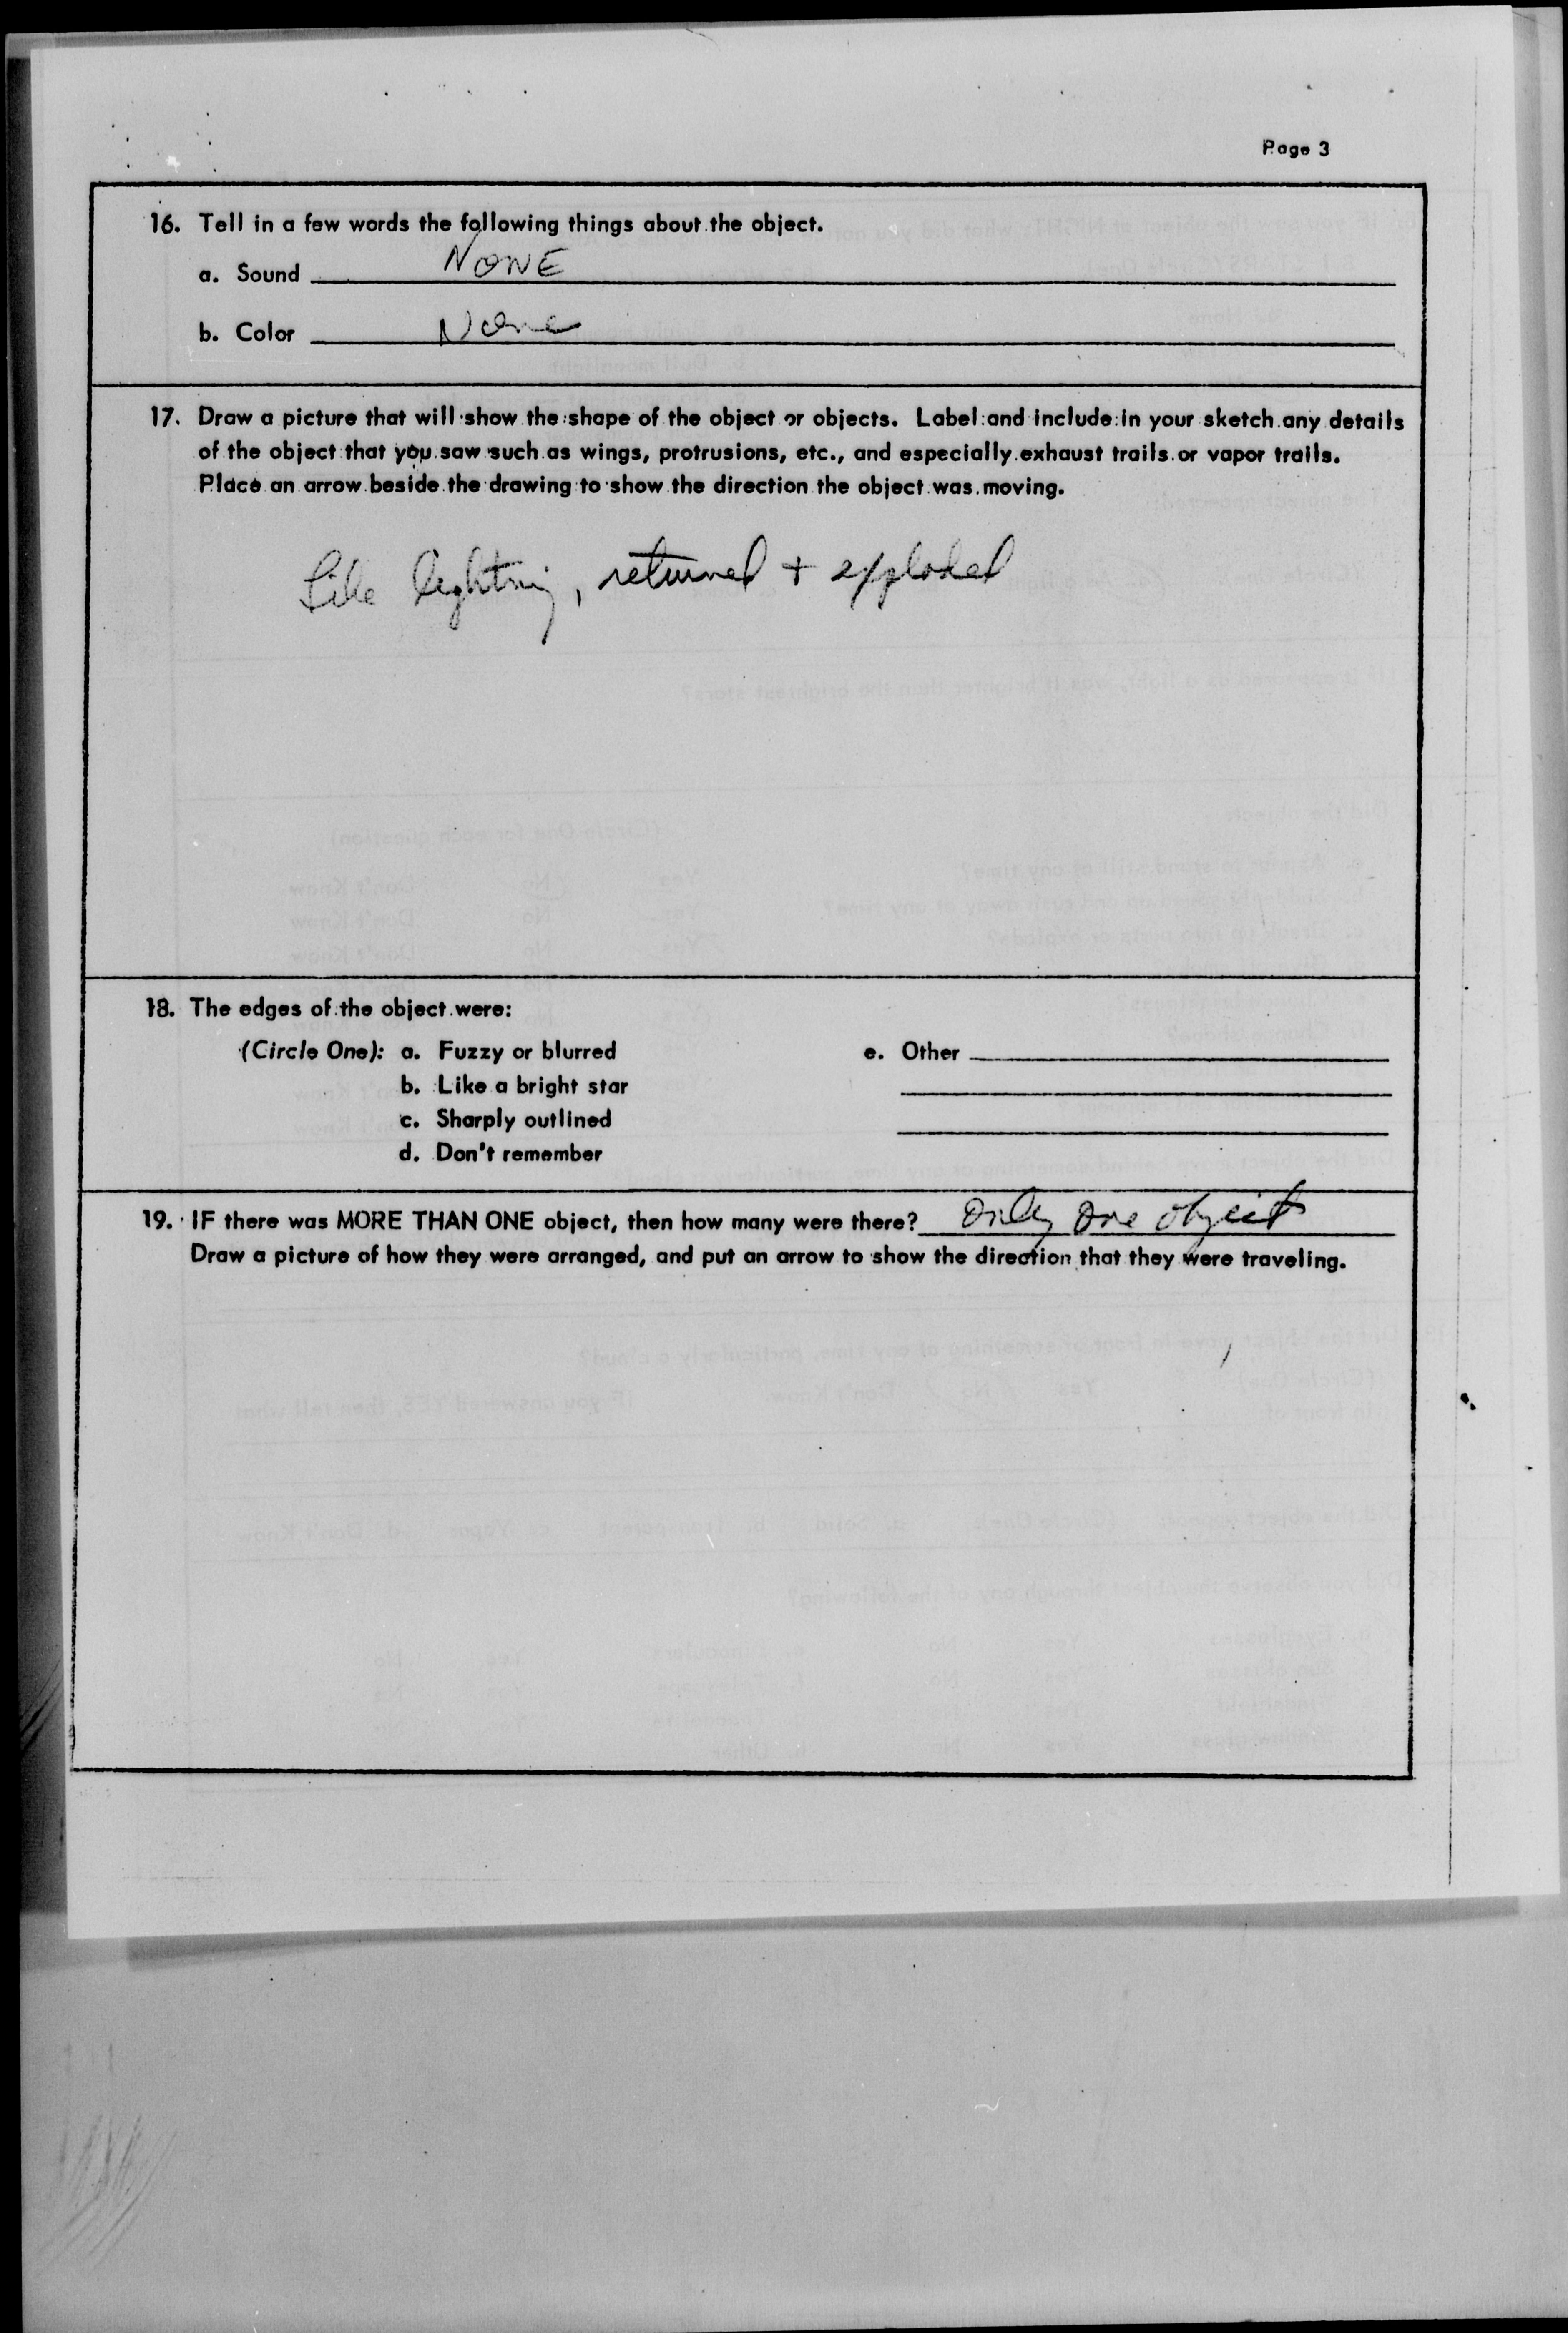 Page 3
16. Tell in a few words the following things about the object.
a. Sound NONE
b. Color None
17. Draw a picture that will show the shape of the object or objects. Label and include in your sketch any details
of the object that you saw such as wings, protrusions, etc., and especially exhaust trails or vapor trails.
Place an arrow beside the drawing to show the direction the object was moving.
Like lightning, returned + exploded
18. The edges of the object were:
(Circle One): a. Fuzzy or blurred e. Other
b. Like a bright star
c. Sharply outlined
d. Don't remember
19. IF there was MORE THAN ONE object, then how many were there? only one object
Draw a picture of how they were arranged, and put an arrow to show the direction that they were traveling.